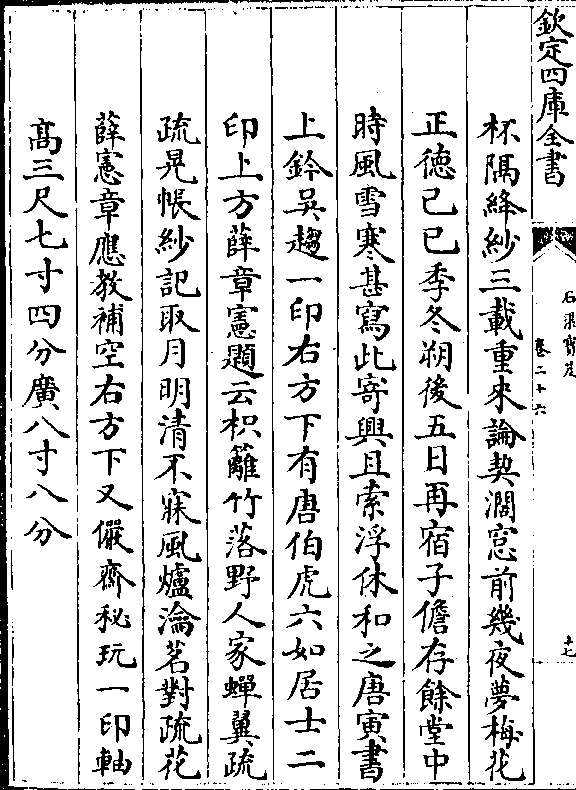 欽定四庫全書
石渠寶笈
卷二十六
十七
杯隅絳紗三載重來論契濶窓前幾夜夢梅花
正德己巳季冬朔後五日再宿子儋存餘堂中
時風雪寒甚寫此寄興且索浮休和之唐寅書
上鈐吳趨一印右方下有唐伯虎六如居士二
印上方薛章憲題云枳籬竹落野人家蟬翼疏
疏晃帳紗記取月明清不寐風爐瀹茗對疏花
薛憲章應教補空右方下又儼齋秘玩一印軸
髙三尺七寸四分廣八寸八分